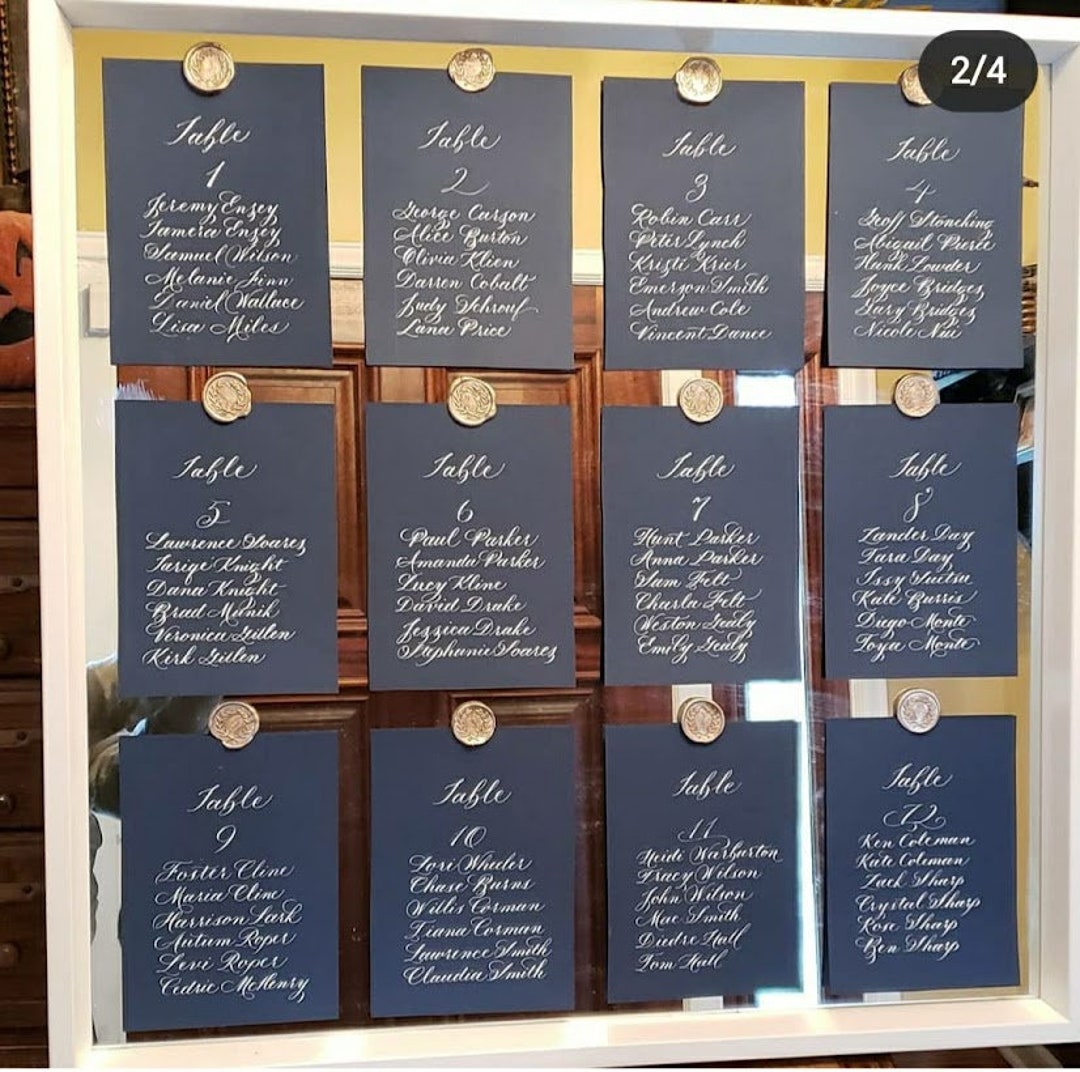 2/4
Table
1
Jeremy Enzey
Tamera Enzey
Samuel Wilson
Melanie Finn
Daniel Wallace
Lisa Miles
Table
2
George Carson
Alice Burton
Olivia Klien
Darren Cobalt
Judy Schrouf
Lana Price
Table
3
Robin Carr
Peter Lynch
Kristi Krier
Emerson Smith
Andrew Cole
Vincent Dance
Table
4
Geoff Stonching
Abigail Pierce
Hank Lowder
Joyce Bridges
Gary Bridges
Nicole Nui
Table
5
Lawrence Soares
Tariqe Knight
Dana Knight
Brad Munik
Veronica Gillen
Kirk Gillen
Table
6
Paul Parker
Amanda Parker
Lucy Kline
David Drake
Jessica Drake
Stephanie Soares
Table
7
Hunt Parker
Anna Parker
Sam Felt
Charla Felt
Weston Gealy
Emily Gealy
Table
8
Zander Day
Tara Day
Issy
Kate Burris
Diego Monte
Toya Monte
Table
9
Foster Cline
Maria Cline
Harrison Lark
Autum Roper
Levi Roper
Cedric McHenry
Table
10
Lori Wheeler
Chase Burns
Willis Corman
Tiana Corman
Lawrence Smith
Claudia Smith
Table
11
Heidi Warburton
Tracy Wilson
John Wilson
Mae Smith
Diedre Hall
Tom Hall
Table
12
Ken Coleman
Kate Coleman
Zack Sharp
Crystal Sharp
Rose Sharp
Ben Sharp